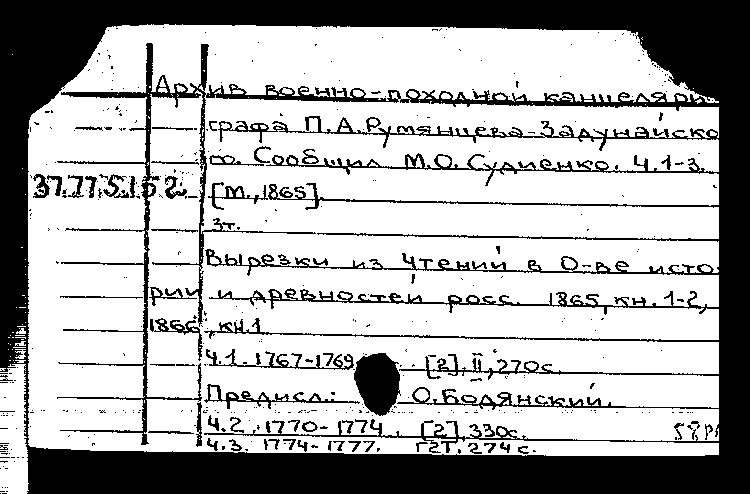 Архив военно-походной канцеляри
графа П.А.Румянцева-Задунайско
го. Сообщил М.О.Судиенко. Ч.1-3.
37.77.5.152
[М.,1865].
3т.
Вырезки из Чтений в О-ве исто
рии и древностей росс. 1865, кн.1-2,
1866, кн.1
Ч.1. 1767-1769. [2], II, 270с.
Предисл.: О.Бодянский.
Ч.2. 1770-1774. [2], 330с.
Ч.3. 1774-1777. [2], 274с.